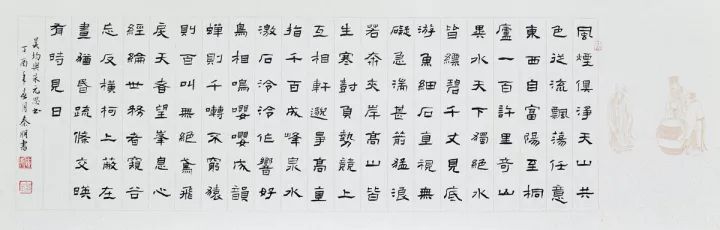 風煙俱淨天山共
色從流飄蕩任意
東西自富陽至桐
廬一百許里奇山
異水天下獨絕水
皆縹碧千丈見底
游魚細石直視無
礙急湍甚箭猛浪
若奔夾岸高山皆
生寒樹負勢競上
互相軒邈爭高直
指千百成峰泉水
激石泠泠作響好
鳥相鳴嚶嚶成韻
蟬則千囀不窮猿
則百叫無絕鳶飛
戾天者望峯息心
經綸世務者窺谷
忘反橫柯上蔽在
晝猶昏疏條交映
有時見日
吴均與朱元思书
丁酉年春月秦